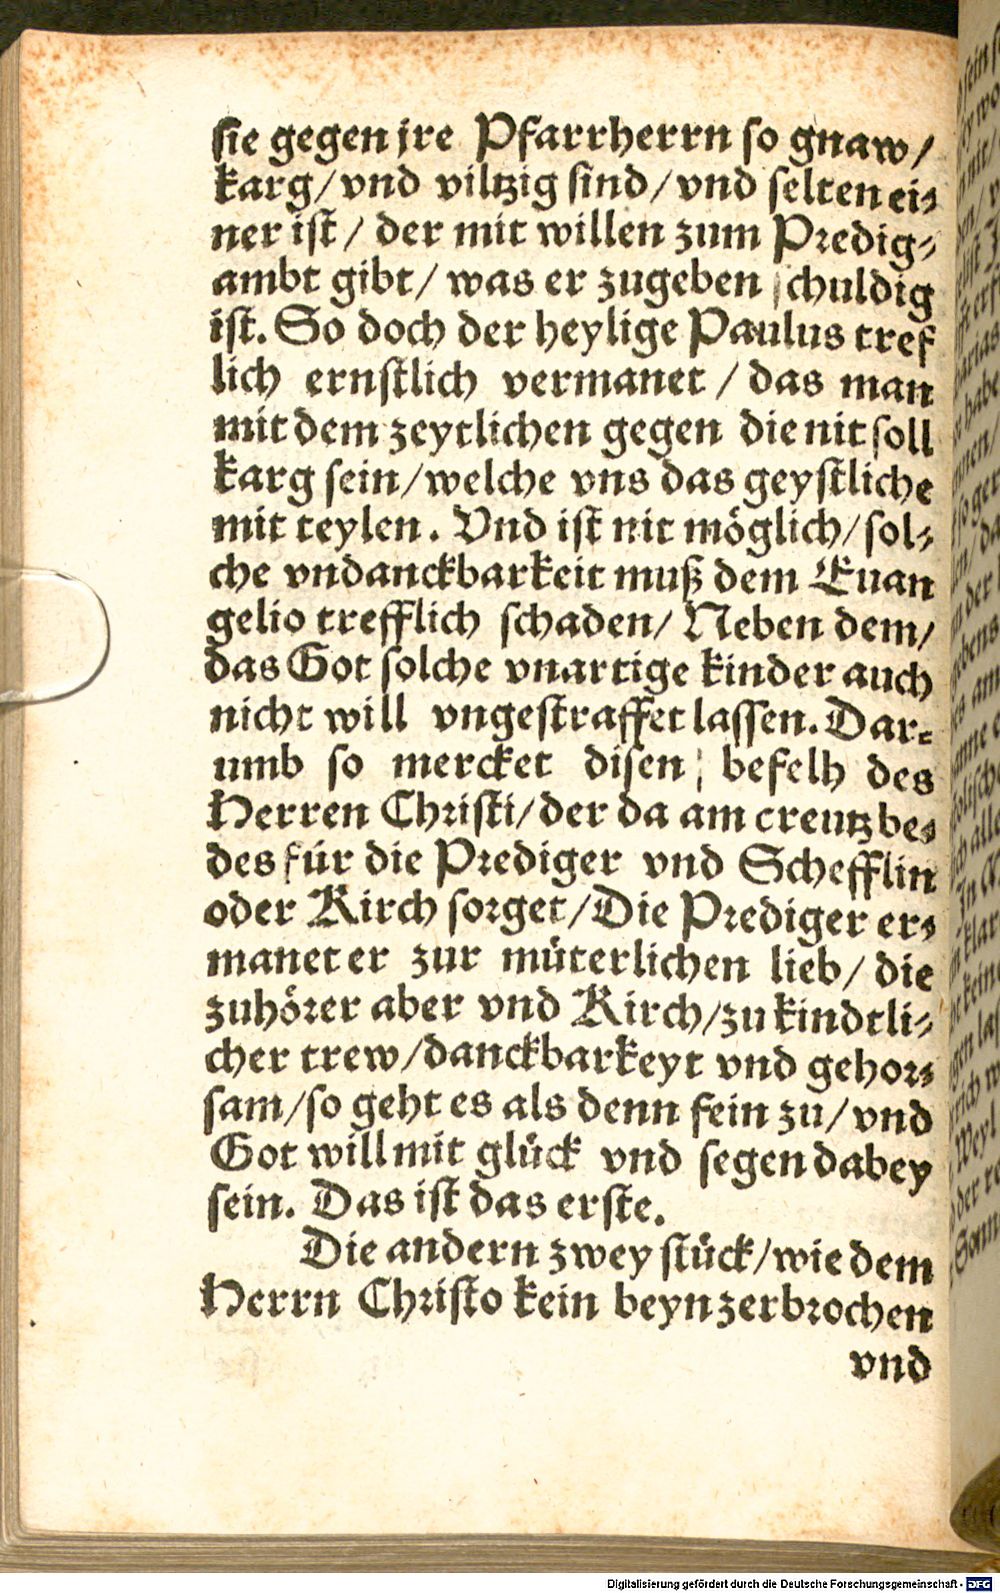 sie gegen jre Pfarrherrn so gnaw/
karg/vnd viltzig sind/vnd selten ei⸗
ner ist/ der mit willen zum Predig⸗
ambt gibt/ was er zugeben schuldig
ist. So doch der heylige Paulus tref
lich ernstlich vermanet / das man
mit dem zeytlichen gegen die nit soll
karg sein/welche vns das geystliche
mit teylen. Vnd ist nit möglich/sol⸗
che vndanckbarkeit muß dem Euan
gelio trefflich schaden/ Neben dem/
das Got solche vnartige kinder auch
nicht will vngestraffet lassen. Dar⸗
umb so mercket disen befelh des
Herren Christi/der da am creutz be⸗
des für die Prediger vnd Schefflin
oder Kirch sorget/Die Prediger er⸗
manet er zur müterlichen lieb/ die
zuhörer aber vnd Kirch/zu kindtli⸗
cher trew/danckbarkeyt vnd gehor⸗
sam/so geht es als denn fein zu/vnd
Got will mit glück vnd segen dabey
sein. Das ist das erste.
Die andern zwey stück/wie dem
Herrn Christo kein beyn zerbrochen
vnd
Digitalisierung gefördert durch die Deutsche Forschungsgemeinschaft - DFG